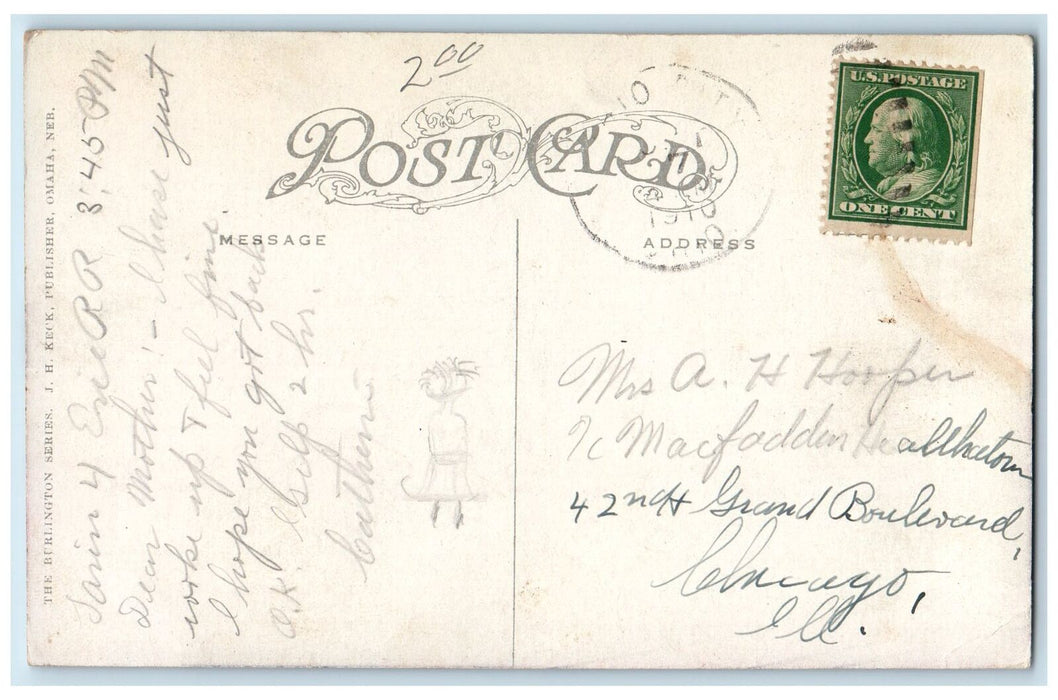 2.00
POST CARD
MESSAGE
ADDRESS
U.S. POSTAGE
ONE CENT
1910
OHIO
THE BURLINGTON SERIES. J. H. KECK, PUBLISHER, OMAHA, NEB.
4 Erie RR 3:45 PM
Dear Mother:- I have just
woke up & feel fine.
I hope you got back
O.K. 2 hr.
Catherine
Mrs A. H Hooper
℅ Macfadden Healthatorium
42nd Grand Boulevard,
Chicago,
Ill.